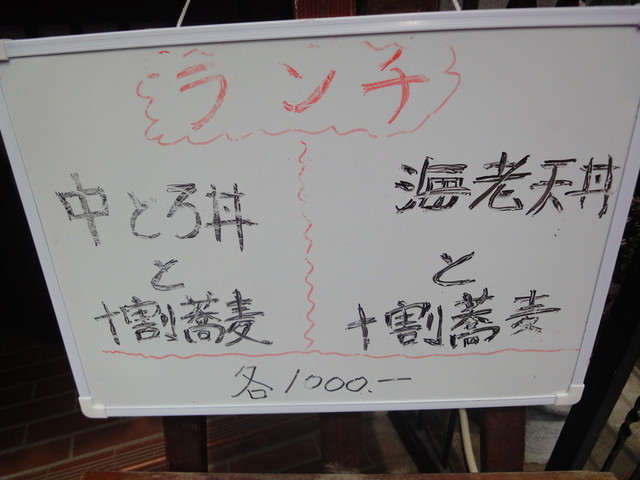 ランチ
中とろ丼
と
十割蕎麦
海老天丼
と
十割蕎麦
各1000.—